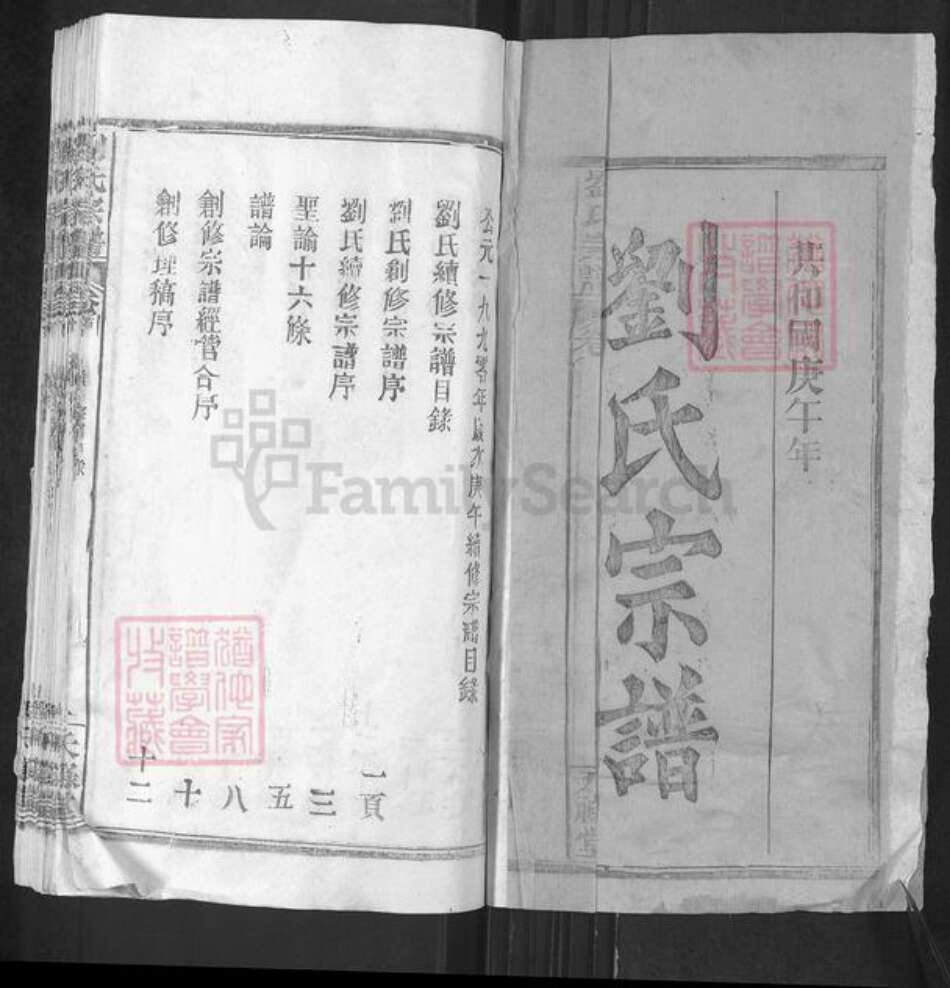 共和國庚午年
劉氏宗譜
公元一九九零年歲次庚午續修宗譜目錄
劉氏續修宗譜目錄 一頁
劉氏創修宗譜序 三
劉氏續修宗譜序 五
聖諭十六條 八
譜論 十
創修宗譜經管合序 十二
創修理稿序
劉氏宗譜
譜學會
收藏
FamilySearch